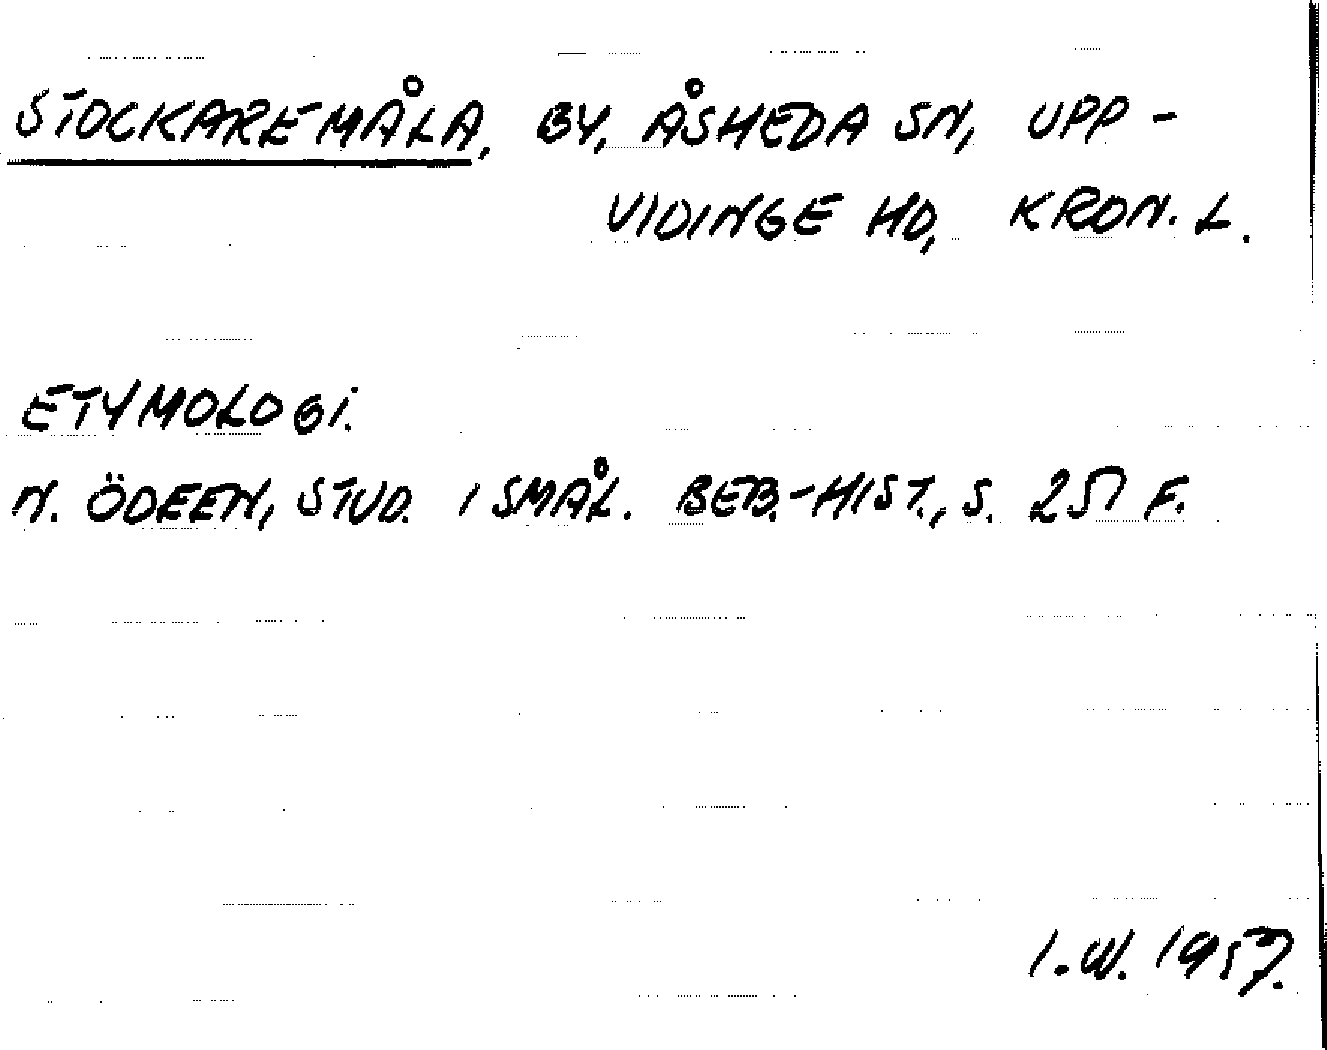 STOCKAREMÅLA, BY, ÅSHEDA SN, UPP-
VIDINGE HD, KRON. L.
ETYMOLOGI.
N. ÖDEEN, STUD. I SMÅL. BEB.-HIST., S. 257 F.
I.W. 1957.